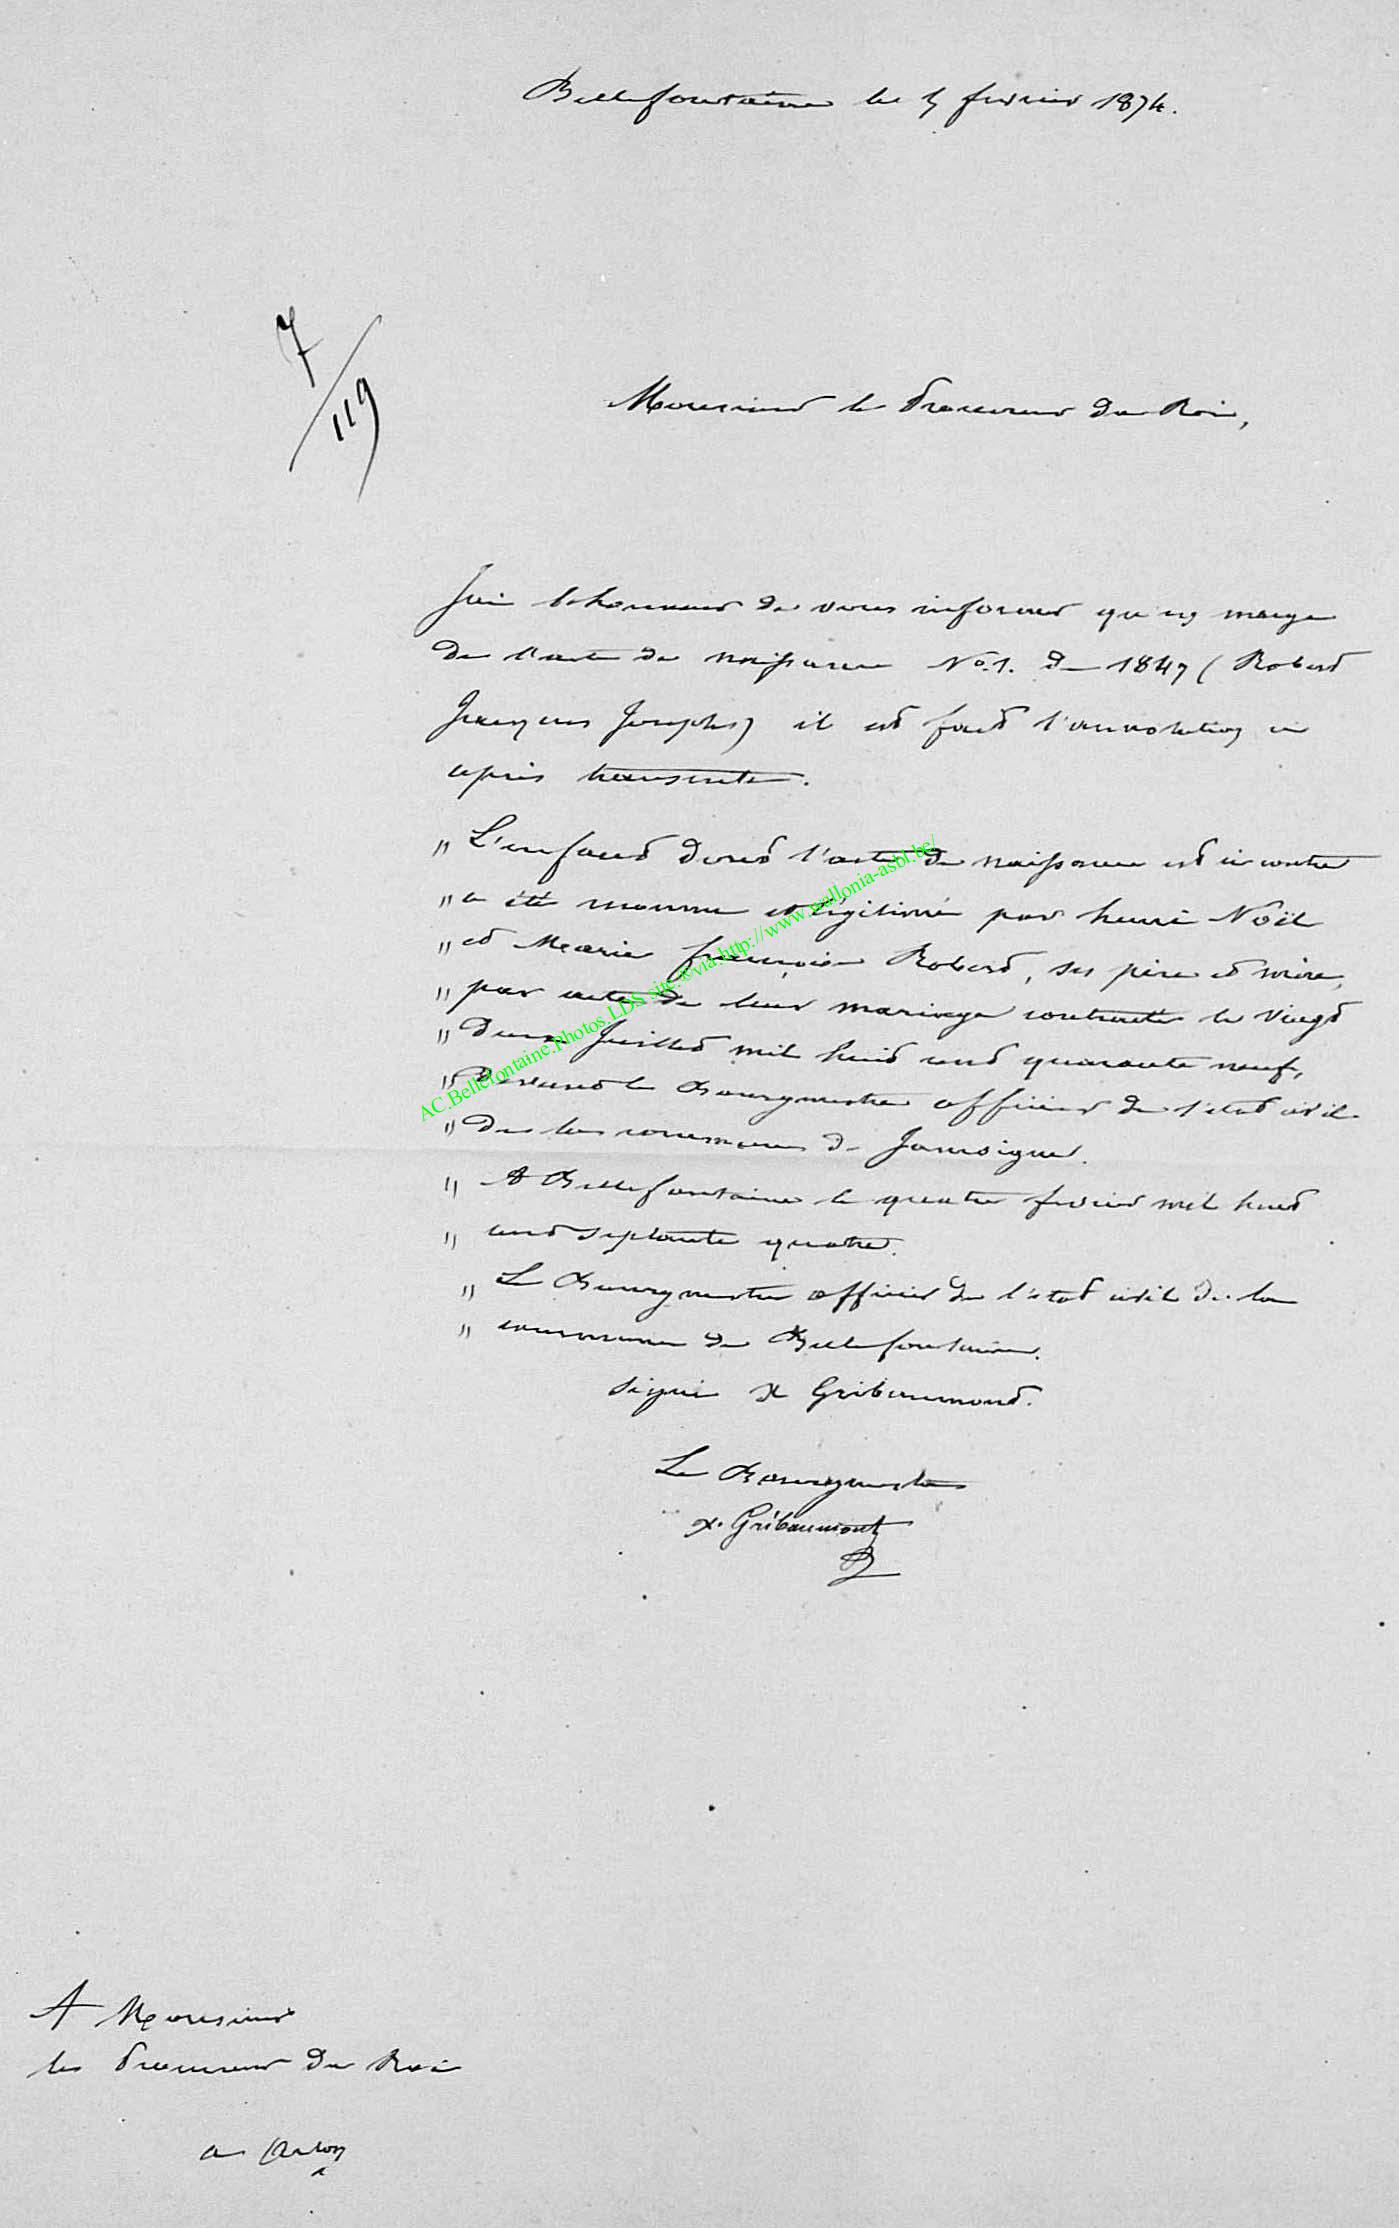 Bellefontaine le 5 fevrier 1874.
7/119
Monsieur le Procureur du Roi,
J'ai l'honneur de vous informer qu'en marge
de l'acte de naissance No. 1. de 1847 ( Robert
François Joseph) il est fait l'annotation ci
après transcrite.
" L'enfant dont l'acte de naissance est ci contre
" a été reconnu et légitimé par henri Noël
" et Marie françoise Robert, ses père et mère,
" par acte de leur mariage contracté le vingt
" deux Juillet mil huit cent quarante neuf,
" Devant le Bourgmestre officier de l'etat civil
" de la commune de Jamoigne.
" A Bellefontaine le quatre fevrier mil huit
" cent septante quatre.
" Le Bourgmestre officier de l'état civil de la
" commune de Bellefontaine.
signé X Gribaumont.
Le Bourgmestre
X. Gribaumont
A Monsieur
le Procureur du Roi
a Arlon
AC.Bellefontaine.Photos.LDS site.®via.http://www.wallonia-asbl.be/